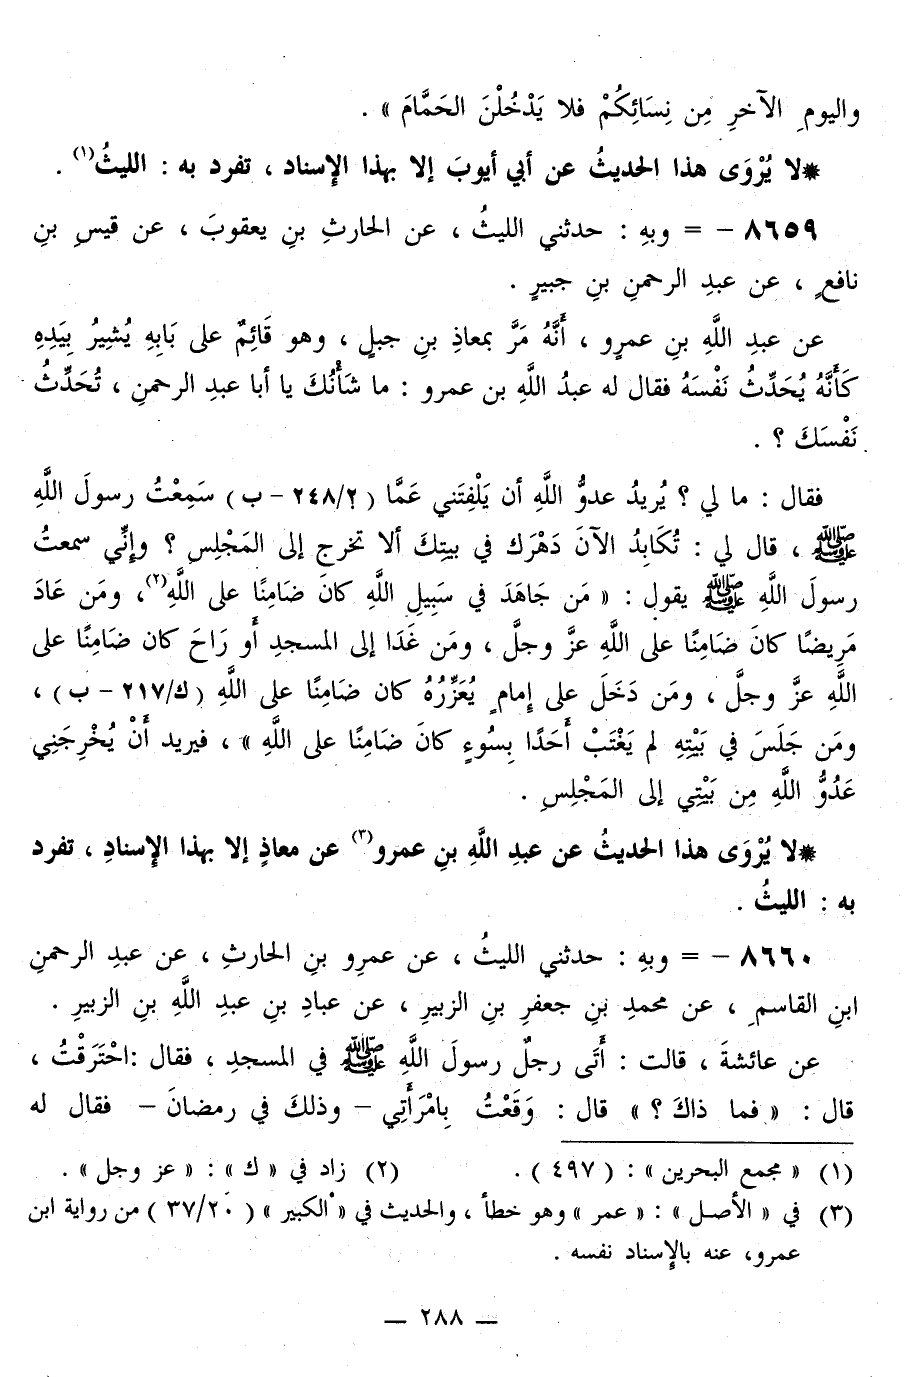 واليومِ الآخرِ مِن نِسَائِكُمْ فلا يَدْخُلْنَ الحَمَّامَ » .
* لا يُرْوَى هذا الحديثُ عن أبي أيوبَ إلا بهذا الإسناد ، تفرد به : الليثُ(١) .
٨٦٥٩ – = وبهِ : حدثني الليثُ ، عن الحارثِ بنِ يعقوبَ ، عن قيسِ بنِ
نافعٍ ، عن عبدِ الرحمنِ بنِ جبيرٍ .
عن عبدِ اللَّهِ بنِ عمرٍو ، أَنَّهُ مَرَّ بمعاذِ بنِ جبلٍ ، وهو قَائِمٌ على بَابِهِ يُشِيرُ بِيَدِهِ
كَأَنَّهُ يُحَدِّثُ نَفْسَهُ فقال له عبدُ اللَّهِ بن عمرو : ما شَأْنُكَ يا أبا عبدِ الرحمنِ ، تُحَدِّثُ
نَفْسَكَ ؟ .
فقال : ما لي ؟ يُرِيدُ عدوُّ اللَّهِ أن يَلْفِتَني عَمَّا ( ٢٤٨/٢ – ب ) سَمِعْتُ رسولَ اللَّهِ
ﷺ ، قال لي : تُكَابِدُ الآنَ دَهْرَك في بيتِكَ ألا تخرج إلى المَجْلِسِ ؟ وإنِّي سمعتُ
رسولَ اللَّهِ ﷺ يقول : « مَن جَاهَدَ في سَبِيلِ اللَّهِ كانَ ضَامِنًا على اللَّهِ(٢)، ومَن عَادَ
مَرِيضًا كانَ ضَامِنًا على اللَّهِ عزَّ وجلَّ ، ومَن غَدَا إلى المسجدِ أَو رَاحَ كان ضَامِنًا على
اللَّهِ عزَّ وجلَّ ، ومَن دَخَلَ على إِمامٍ يُعَزِّرُهُ كان ضَامِنًا على اللَّهِ ( ك/٢١٧ – ب ) ،
ومَن جَلَسَ في بَيْتِهِ لم يَغْتَبْ أَحَدًا بِسُوءٍ كانَ ضَامِنًا على اللَّهِ » ، فيريد أَنْ يُخْرِجَنِي
عَدُوُّ اللَّهِ مِن بَيْتِي إلى المَجْلِسِ .
* لا يُرْوَى هذا الحديثُ عن عبدِ اللَّهِ بنِ عمرو(٣) عن معاذٍ إلا بهذا الإسنادِ ، تفرد
به : الليثُ .
٨٦٦٠ – = وبهِ : حدثني الليثُ ، عن عمرِو بنِ الحارثِ ، عن عبدِ الرحمنِ
ابنِ القاسمِ ، عن محمدِ بنِ جعفرِ بنِ الزبيرِ ، عن عبادِ بنِ عبدِ اللَّهِ بنِ الزبيرِ .
عن عائشةَ ، قالت : أَتَى رجلٌ رسولَ اللَّهِ ﷺ في المسجدِ ، فقال :احْتَرَقْتُ ،
قال : « فما ذاكَ ؟ » قال : وَقَعْتُ بِامْرَأَتِي – وذلكَ في رمضانَ – فقال له
(١) « مجمع البحرين » : ( ٤٩٧ ) . (٢) زاد في « ك » : « عز وجل » .
(٣) في « الأصل » : « عمر » وهو خطأ ، والحديث في « الكبير » ( ٣٧/٢٠ ) من رواية ابن
عمرو، عنه بالإسناد نفسه .
— ٢٨٨ —